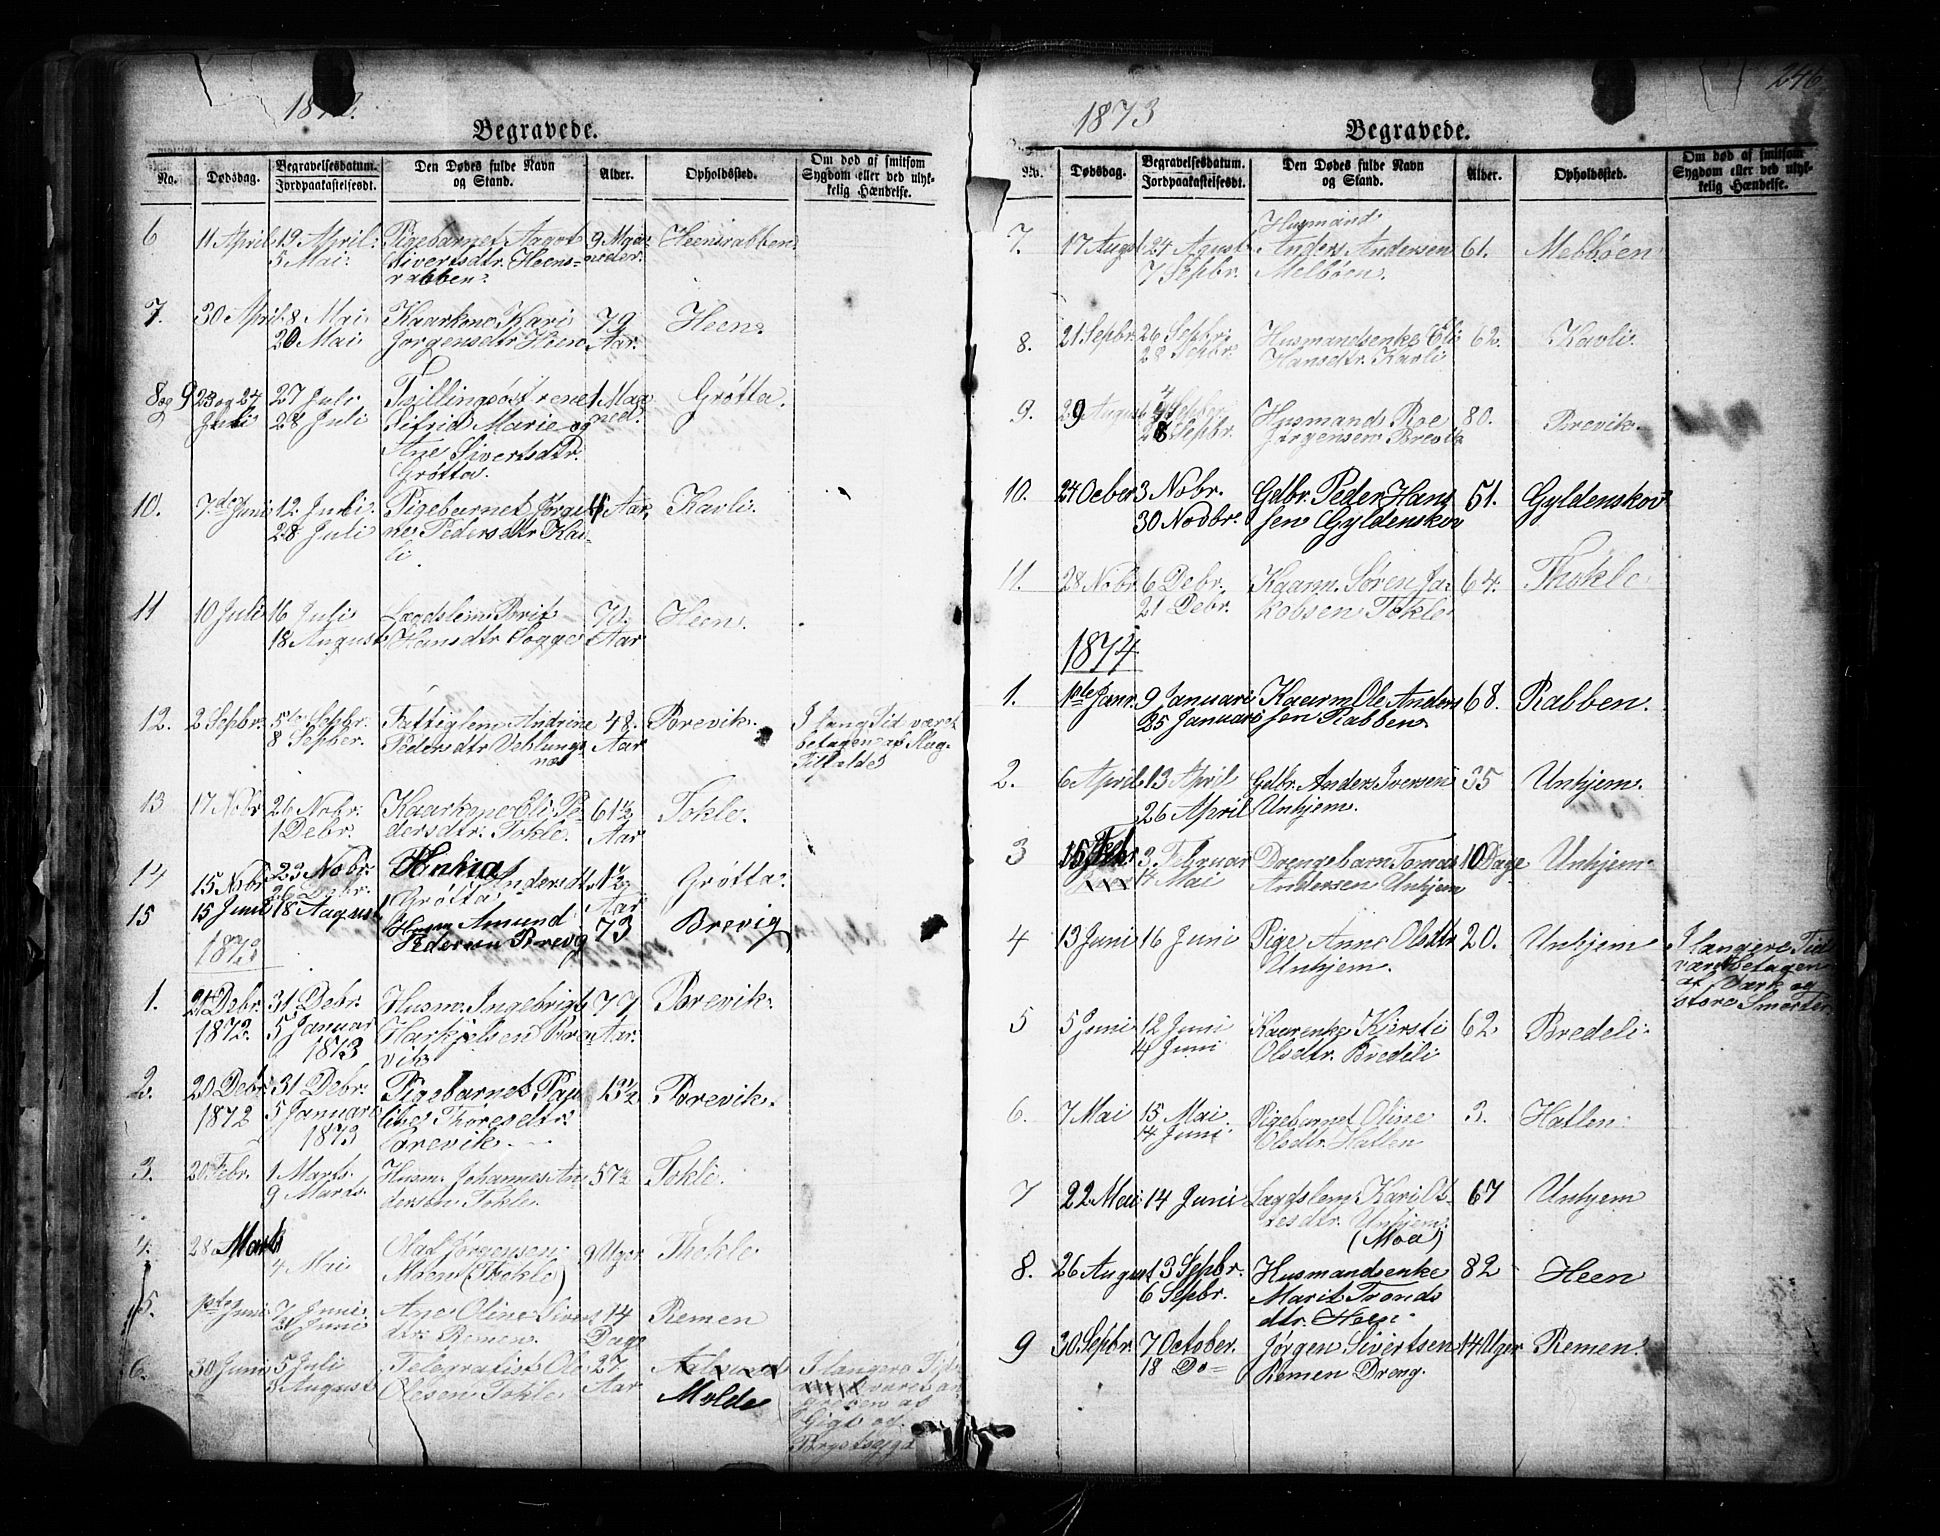 1872.
Begravede.
No.
Dødsdag.
Begravelsesdatum.
Jordpaakastelsesdt.
Den Dødes fulde Navn
og Stand.
Alder.
Opholdssted.
Om død af smitsom
Sygdom eller ved ulyk-
kelig Hændelse.
6 11 April 19 April Pigebarnet Aagot 9 Maa- Heensrabben
5 Mai. Sivertsdtr. Heens- neder.
rabben.
7. 30 April 8 Mai Kaarkone Kari 79 Heen.
20 Mai Jørgensdtr Heen Aar.
8 og 9 23 og 24 27 Juli Tvillingsøstrene 1 Maa- Grøtta.
Juli 28 Juli Sifrid Marie og ned.
Ane Sivertsdtr.
Grøtta.
10. 7de Juni 12 Juli Pigebarnet Jørgi- 4 Aar Kavli.
28 Juli ne Pedersdtr Kav-
li
11 10 Juli 16 Juli Lægdslem Brit Heen.
18 August Hansdtr Sogge Aar
12. 2 Sepbr. 5te Sepbr. Fattiglem Andrine 48. Brevik. I lang Tid været
8 Sepber. Pedersdtr Veblungs- Aar betagen af Slag-
nes Tilfælde
13 17 Nobr 26 Nobr. Kaarkone Eli Pe- 61½ Tokle.
1 Debr. dersdtr. Tokle. Aar
14 15 Nobr 23 Nobr. Andersdtr 1½ Grøtta.
26 Debr. Grøtta Aar
15 15 Juni 18 August Husm Amund 73 Brevig
Pedersen Brevig
1873
1. 21 Debr. 31 Debr. Husm. Ingebrigt 79 Brevik.
1872. 5 Januar Bre- Aar.
1873 vik
2. 20 Debr. 31 Debr. Pigebarnet 13½ Brevik.
1872 5 Januar Thoresdtr.
1873 Brevik
3. 20 Febr. 1 Marts Husm. Johannes An- 57½ Tokle.
9 Marts. dersen Tokle.
4. 28 Marts Olaf Jørgensen 9 Uger Thokle
4 Mai Moen (Thokle)
5. 1ste Juni 7 Juni Ane Oline Sivers- 14 Remen
Juni dtr. Remen. Dage
6. 30 Juni 5 Juli Telegrafist Ole 27 I længere Tid
August Olsen Tokle Aar Molde været an-
greben af
Gigt og
Brystsyge
246
1873
Begravede.
No.
Dødsdag.
Begravelsesdatum.
Jordpaakastelsesdt.
Den Dødes fulde Navn
og Stand.
Alder.
Opholdssted.
Om død af smitsom
Sygdom eller ved ulyk-
kelig Hændelse.
Husmand
7. 17 Augst 24 Agust Anders Andersen 61. Melbøen
7 Sepbr. Melbøen.
8. 21 Sepbr. 26 Sepbr. Husmandsenke Eli 62. Kavli.
28 Sepbr. Hansdtr. Kavli
9. 29 August Husmand Roe 80. Brevik.
28 Sepbr. Jørgensen Brevik
10. 24 Ocber 3 Nobr. Gdbr. Peder Han- 51. Gyldenskov
30 Nodbr. sen Gyldenskov
11. 28 Nobr. 6 Debr. Kaarm. Søren Ja- 64. Thokle
21 Debr. kobsen Tokle
1874
1. 1ste Janr. 9 Januari Kaarm Ole Anders 68. Rabben.
25 Januari sen Rabben.
2. 6 April 13 April Gdbr. Anders Iversen 35 Unhjem.
26 April Unhjem.
3 Febr 3 Februar Drengebarn Tomas 10 Dage Unhjem
14 Mai Andersen Unhjem
4 13 Juni 16 Juni Pige Anne Olsdtr. 20. Unhjem I længere Tid
Unhjem. været betagen
af Værk og
store Smerter
5 5 Juni 12 Juni Kaarenke Kjersti 62 Bredeli.
14 Juni Olsdtr. Bredeli
6. 7 Mai 15 Mai Pigebarnet Oline 3. Hatlen.
14 Juni. Olsdtr. Hatlen
7 22 Mai 14 Juni Lægdslem Kari 67 Unhjem
Unhjem.
(Moa)
8. 26 August 3 Sepbr. Husmandsenke 82 Heen
6 Sepbr. Marit Tronds
dtr. Heen.
9 30 Sepbr. 7 October. Jørgen Sivertsen 14 Uger Remen
18 Do Remen Dreng.